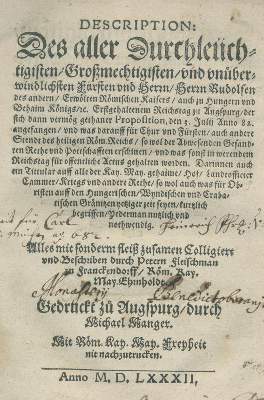 DESCRIPTION:
Des aller Durchleüch-
tigisten/Großmechtigisten/vnd vnüber-
windlichsten Fürsten vnd Herrn/Herrn Rudolfen
des andern/Erwölten Römischen Kaisers/auch zu Hungern vnd
Behaim Königs/ꝛc. Erstgehaltenem Reichstag zu Augspurg/der
sich dann vermög gethaner Proposition, den 3. Julij Anno 82.
angefangen/vnd was darauff für Chur vnd Fürsten/auch andere
Stende des heiligen Röm. Reichs/so wol der Abwesenden Gesand-
ten Räthe vnd Pottschafften erschinen/vnd was sonst in werendem
Reichstag für offentliche Actus gehalten worden. Darinnen auch
ein Titular auff alle der Kay. May. gehaime/Hof/Landofficier
Cammer/Kriegs vnd andere Räthe/so wol auch was für Ob-
risten auff den Hungerischen/Windischen vnd Craba-
tischen Gränitzen yetziger zeit seyen/kurtzlich
begriffen/Yederman nutzlich vnd
nothwendig.
Alles mit sonderm fleiß zusamen Colligiert
vnd Beschriben durch Petern Fleischman
Franckendorff/Röm. Kay.
May. Ehrnholdt.
Monasterij
Gedruckt zů Augspurg/durch
Michael Manger.
Mit Röm. Kay. May. Freyheit
nit nachzutrucken.
Anno M. D. LXXXII.